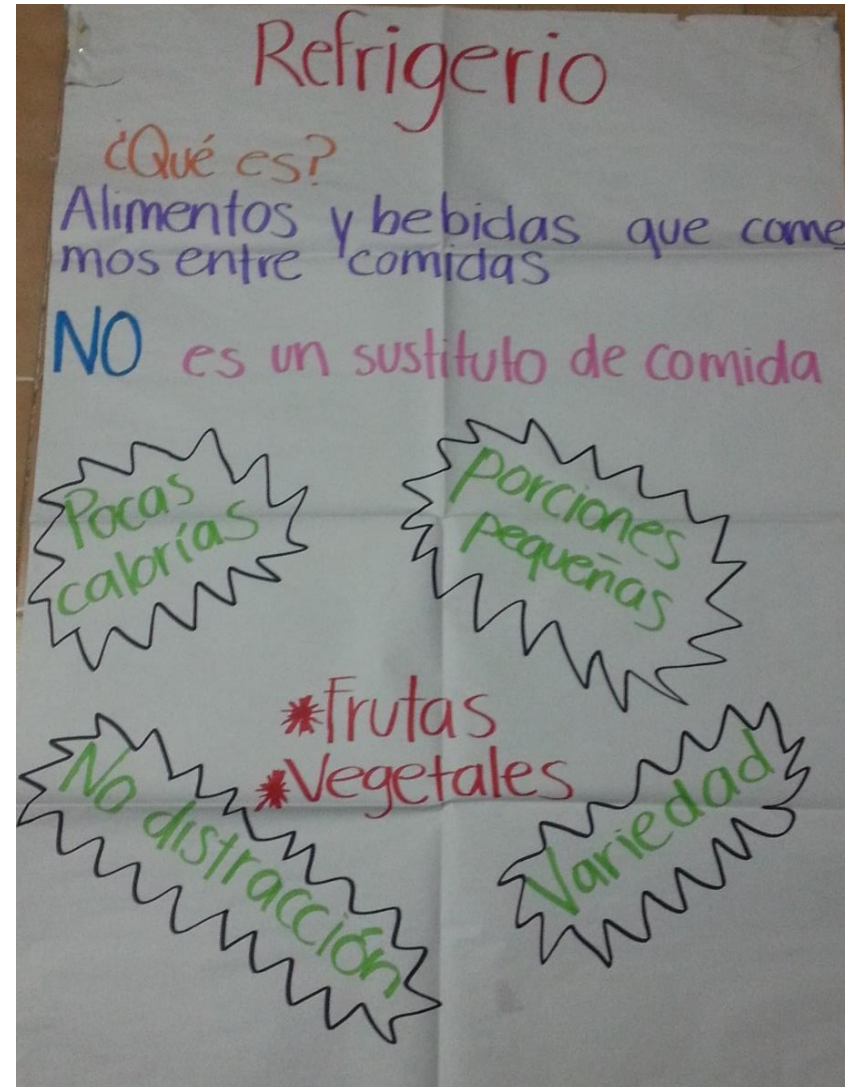 Refrigerio
¿Qué es?
Alimentos y bebidas que come
mos entre comidas
NO es un sustituto de comida
Pocas
calorías
porciones
pequeñas
*Frutas
*Vegetales
No distracción
Variedad